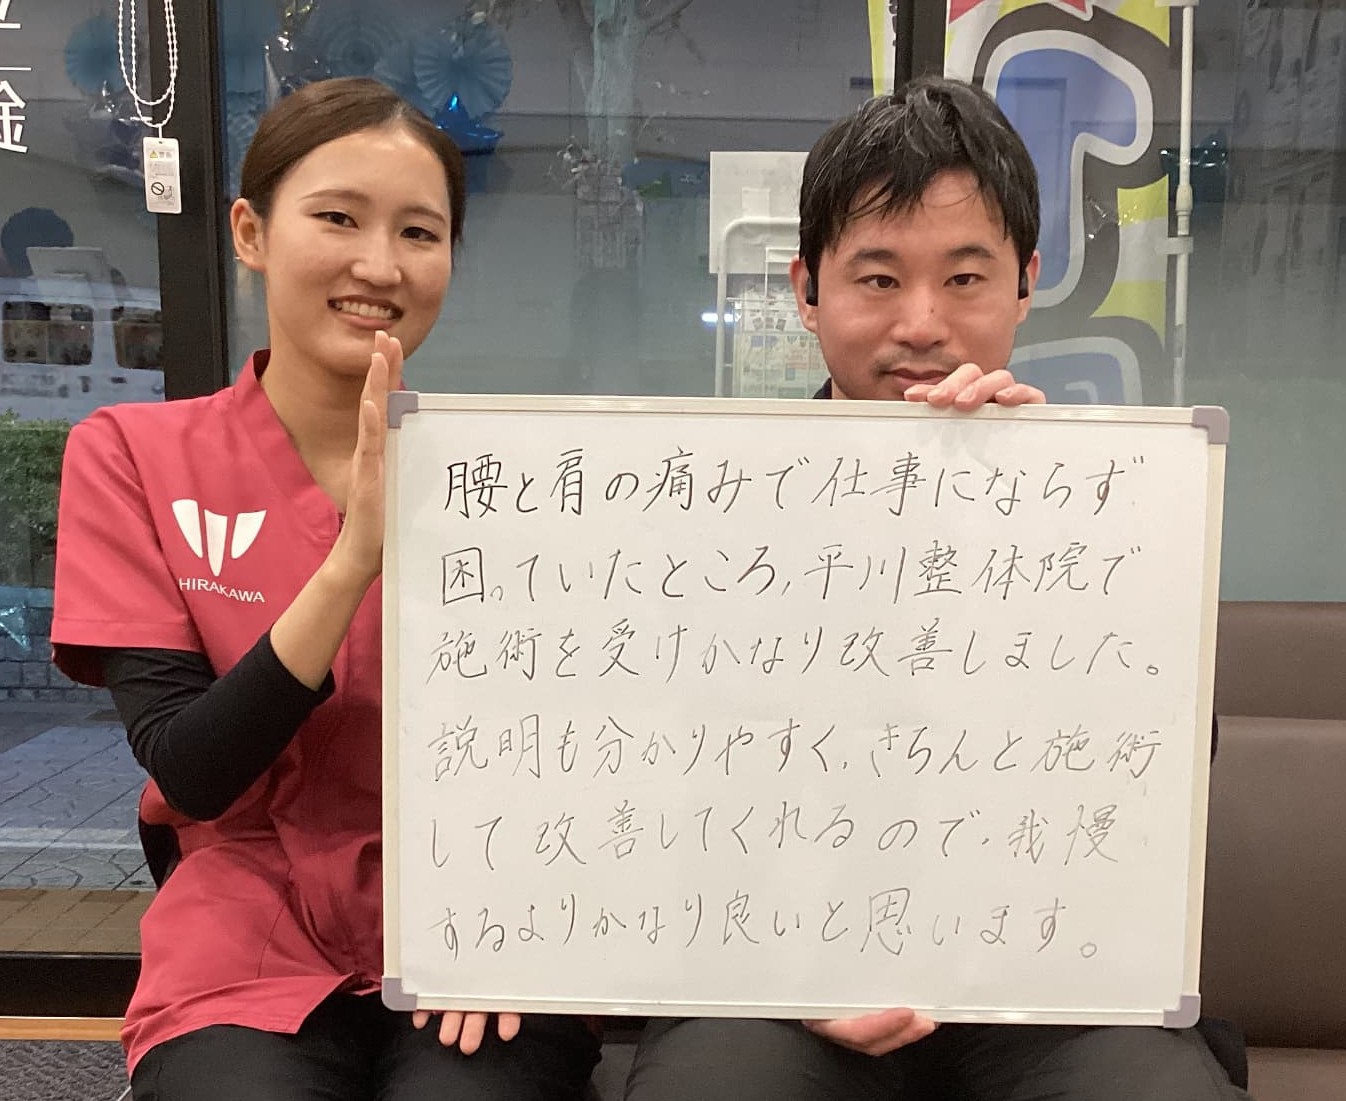 腰と肩の痛みで仕事にならず
困っていたところ、平川整体院で
施術を受けかなり改善しました。
説明も分かりやすく、きちんと施術
して改善してくれるので、我慢
するよりかなり良いと思います。
HIRAKAWA